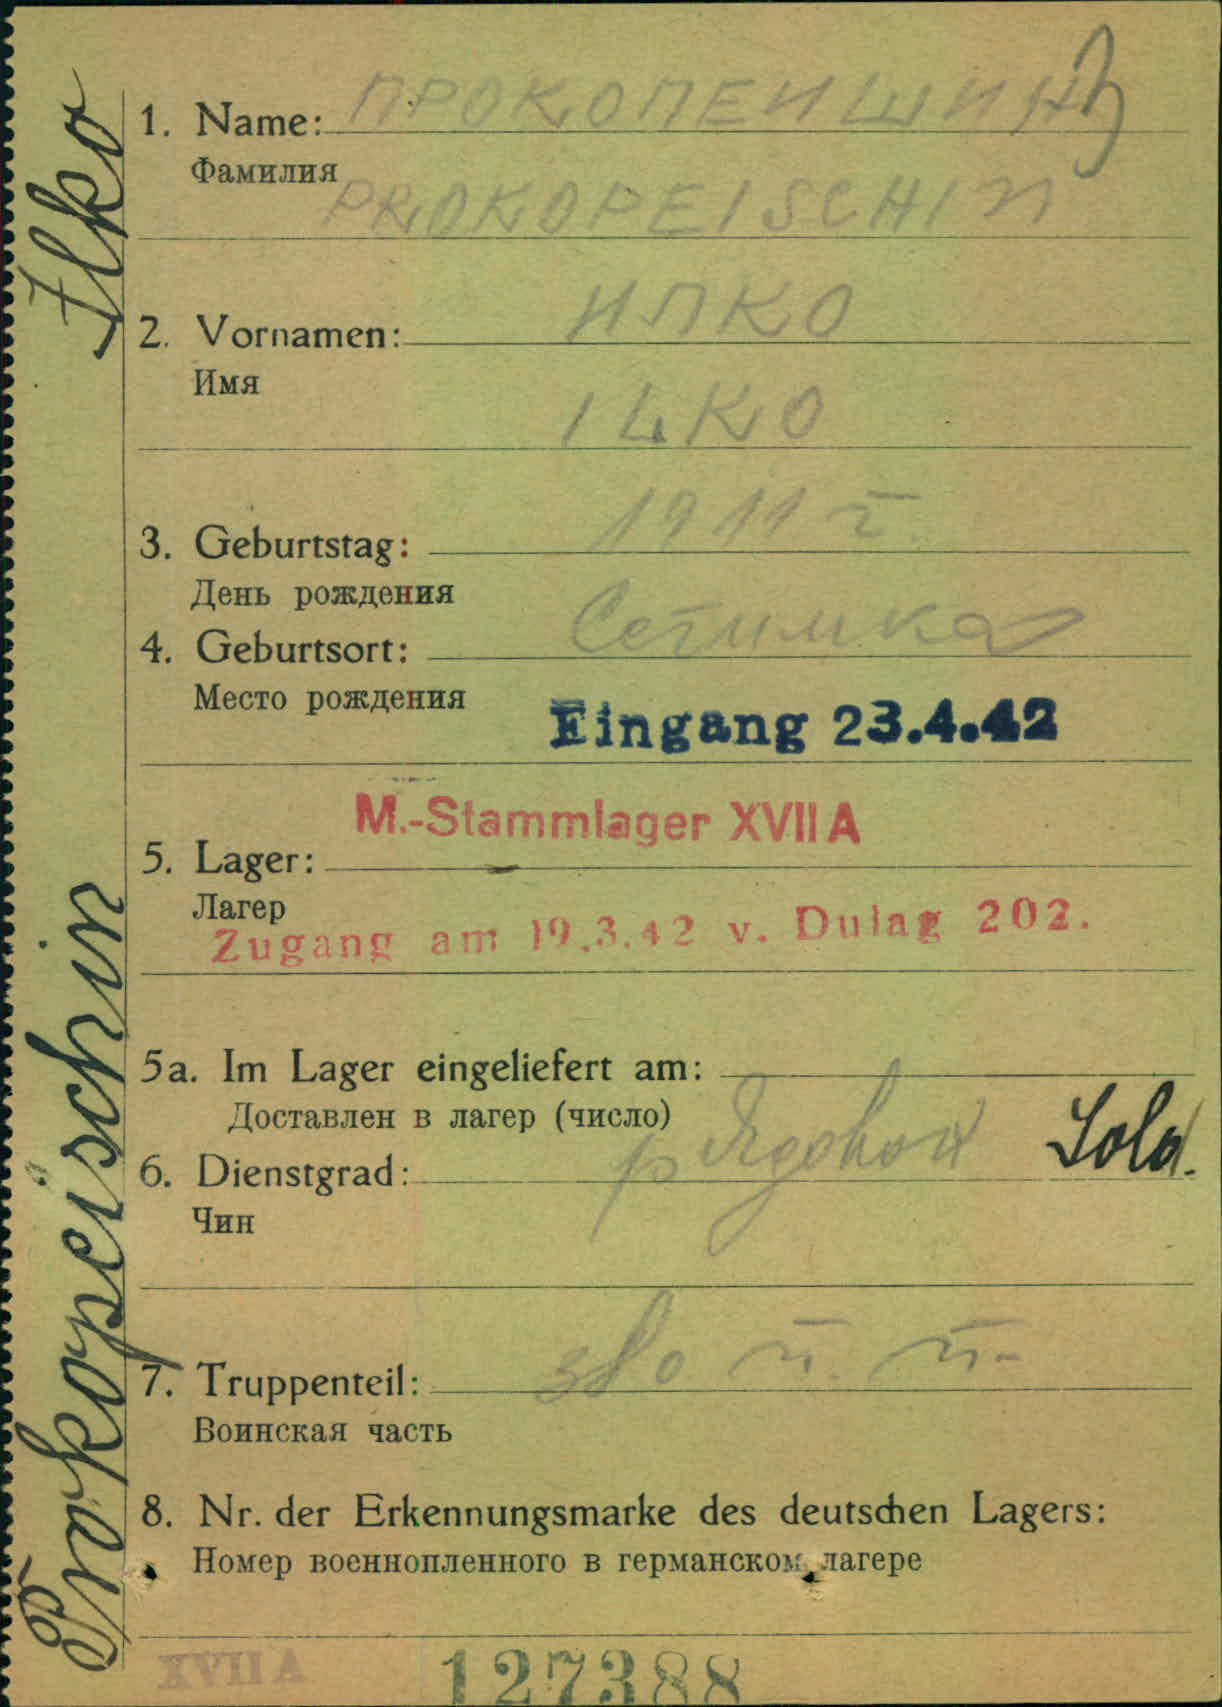 Prokopeischin Ilko
1. Name: ПРОКОПЕИШИН
Фамилия
PROKOPEISCHIN
2. Vornamen: ИЛКО
Имя
ILKO
3. Geburtstag: 1911 г.
День рождения
4. Geburtsort:
Место рождения
Eingang 23.4.42
M.-Stammlager XVII A
5. Lager:
Лагер
Zugang am 19.3.42 v. Dulag 202.
5a. Im Lager eingeliefert am:
Доставлен в лагер (число)
6. Dienstgrad: рядовой Sold.
Чин
7. Truppenteil:
Воинская часть
8. Nr. der Erkennungsmarke des deutschen Lagers:
Номер военнопленного в германском лагере
XVII A 127388